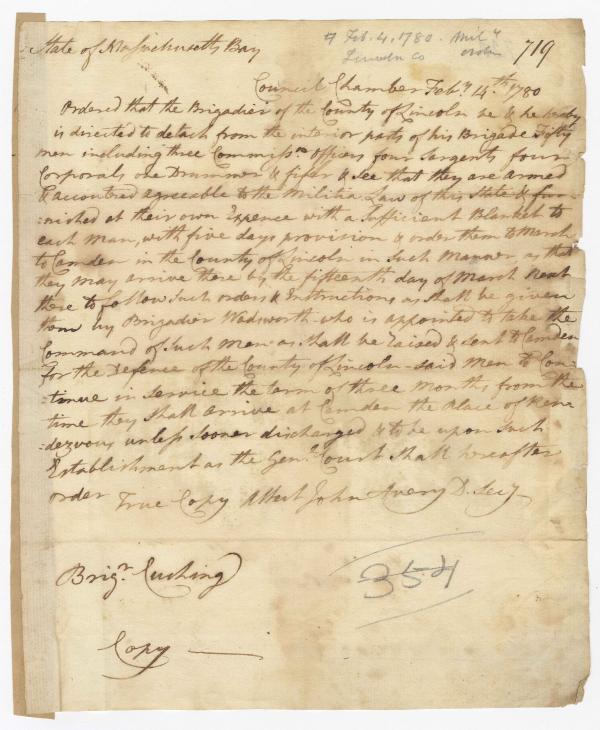 State of Massachusetts Bay
# Feb. 4, 1780. Mil.y
Lincoln Co order
719
Council Chamber Feby. 4th. 1780
Ordered that the Brigadier of the County of Lincoln be & he hereby
is directed to detach from the interior parts of his Brigade Fifty
men including three Commissn. officers four Sargents four
Corporals one Drummer & fifer & see that they are armed
& accoutred agreable to the Militia Law of this State & fur-
-nished at their own Expence with a Sufficient Blanket to
each Man, with five days provision & order them to March
to Camden in the County of Lincoln in Such Manner, as that
they may arrive there by the fifteenth day of March next
there to follow Such orders & Instructions as shall be given
them by Brigadier Wadsworth who is appointed to take the
Command of Such Men as shall be raised & sent to Camden
for the Defence of the County of Lincoln said Men to Con-
-tinue in service the term of three Months from the
time they shall arrive at Camden the Place of Ren-
-dezvous unless sooner discharged & to be upon such
Establishment as the Genl. Court shall hereafter
order
True Copy Attest John Avery D. Secy
Brigr. Cushing
354
Copy